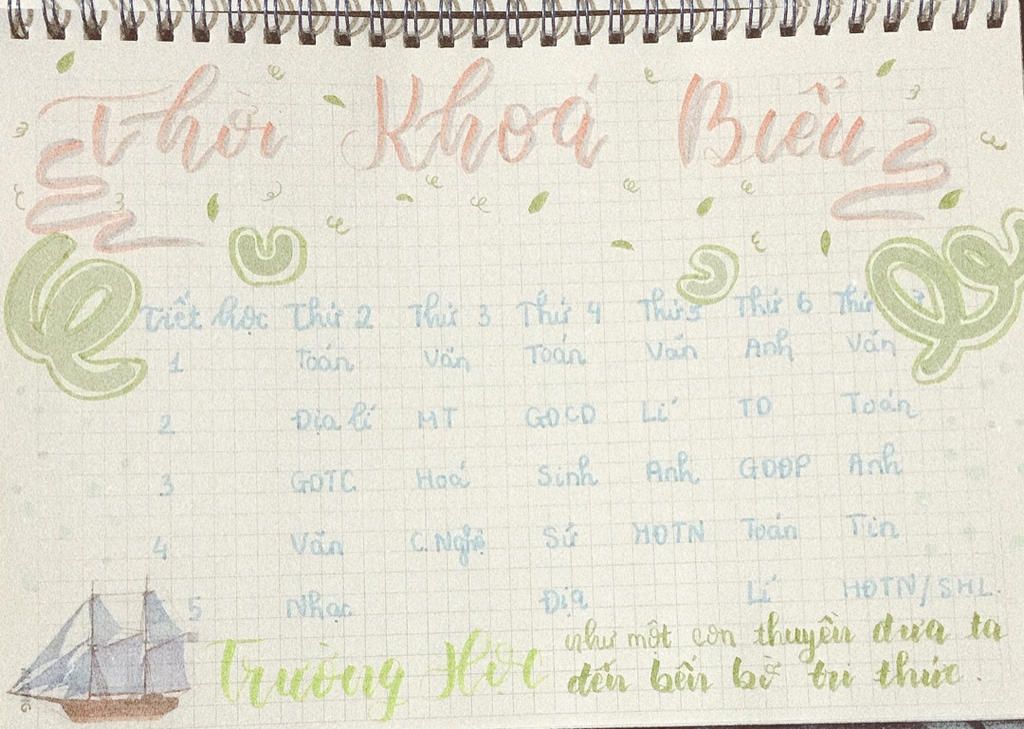 Thời Khoá Biểu
Tiết học Thứ 2 Thứ 3 Thứ 4 Thứ 5 Thứ 6 Thứ 7
1 Toán Văn Toán Văn Anh Văn
2 Địa lí MT GDCD Lí TD Toán
3 GDTC Hoá Sinh Anh GDĐP Anh
4 Văn C.Nghệ Sử HĐTN Toán Tin
5 Nhạc Địa Lí HĐTN/SHL.
Trường Học như một con thuyền đưa ta
đến bến bờ tri thức.